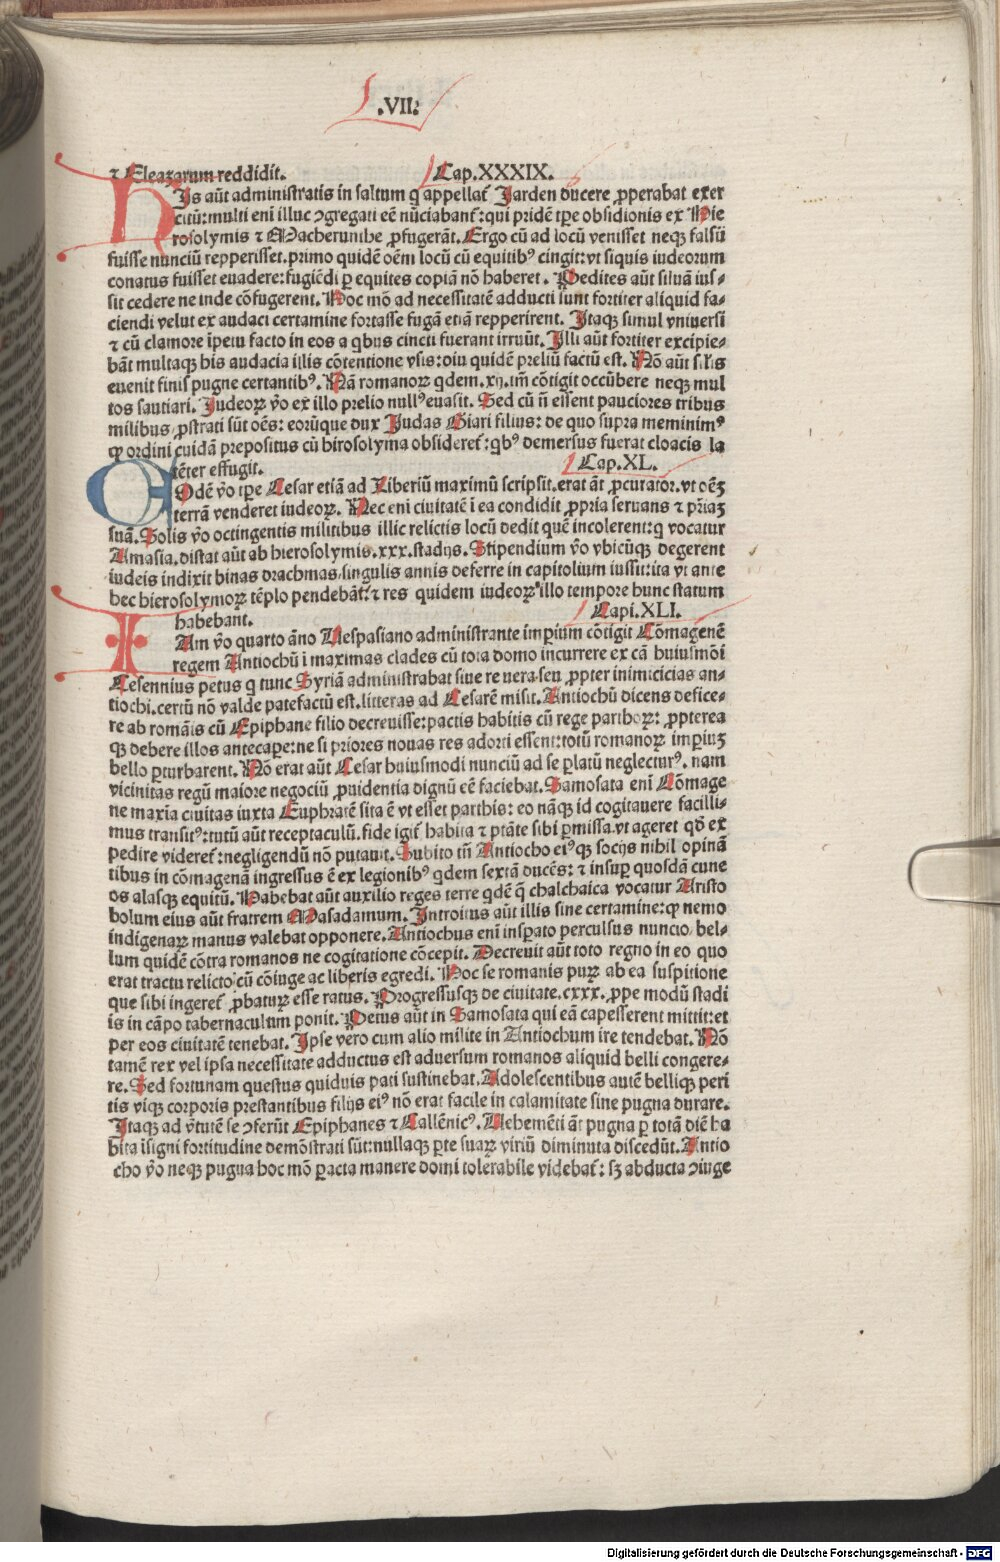 .VII.
⁊ Eleazarum reddidit. Cap. XXXIX.
HIs aūt administratis in saltum q̄ appellat᷑ Jarden ducere ꝓperabat exer
citū: multi eni illuc ↄgregati eē nūciabant᷑: qui pridē tꝑe obsidionis ex Hie
rosolymis ⁊ Macherunthe ꝓfugerāt. Ergo cū ad locū venisset neqꝫ falsū
fuisse nunciū repperisset. primo quidē oēm locū cū equitibꝰ cingit: vt siquis iudeorum
conatus fuisset euadere: fugiēdi ꝑ equites copiā nō haberet. Pedites aūt siluā ius-
sit cedere ne inde cōfugerent. Hoc mō ad necessitatē adducti sunt fortiter aliquid fa-
ciendi velut ex audaci certamine fortasse fugā etiā repperirent. Itaqꝫ simul vniuersi
⁊ cū clamore īpetu facto in eos a qbus cincti fuerant irruūt. Illi aūt fortiter excipie-
bāt multaqꝫ his audacia illis cōtentione vsis: diu quidē preliū factū est. Nō aūt silis
euenit finis pugne certantibꝰ. Nā romanoꝝ qdem. xij. tm̄ cōtigit occūbere neqꝫ mul
tos sautiari. Judeoꝝ ṽo ex illo prelio nullꝰ euasit. Sed cū ii essent pauciores tribus
milibus ꝓstrati sūt oēs: eorūque dux Judas Giari filius: de quo supra meminimꝰ
ꝙ ordini cuidā prepositus cū hirosolyma obsideret᷑: qbꝰ demersus fuerat cloacis la
tēter effugit. Cap. XL.
EOdē ṽo tꝑe Cesar etiā ad Liberiū maximū scripsit. erat āt ꝓcurator. vt oēꝫ
terrā venderet iudeoꝝ. Nec eni ciuitatē i ea condidit ꝓpria seruans ⁊ priaꝫ
suā. Solis ṽo octingentis militibus illic relictis locū dedit quē incolerent: q vocatur
Amasia. distat aūt ab hierosolymis. xxx. stadijs. Stipendium ṽo vbicūqꝫ degerent
iudeis indixit binas drachmas. singulis annis deferre in capitolium iussit: ita vt ante
hec hierosolymoꝝ tēplo pendebāt: ⁊ res quidem iudeoꝝ illo tempore hunc statum
habebant. Capi. XLI.
IAm ṽo quarto āno Vespasiano administrante imꝑium cōtigit Cōmagenē
regem Antiochū i maximas clades cū tota domo incurrere ex cā huiusmōi
Cesennius petus q tunc Syriā administrabat siue re vera seu ꝓpter inimicicias an-
tiochi. certū nō valde patefactū est. litteras ad Cesarē misit. Antiochū dicens defice-
re ab romāis cū Epiphane filio decreuisse: pactis habitis cū rege parthoꝝ: ꝓpterea
ꝙ debere illos antecaꝑe: ne si priores nouas res adorti essent: totū romanoꝝ imꝑiuꝫ
bello ꝑturbarent. Nō erat aūt Cesar huiusmodi nunciū ad se ꝑlatū neglecturꝰ. nam
vicinitas regū maiore negociū ꝓuidentia dignū eē faciebat. Samosata enī Cōmage
ne maxīa ciuitas iuxta Euphratē sita ē vt esset parthis: eo nāqꝫ id cogitauere facilli-
mus transitꝰ: tutū aūt receptaculū. fide igit᷑ habita ⁊ ptāte sibi ꝑmissa. vt ageret qd̄ ex
pedire videret᷑: negligendū nō putauit. Subito tn̄ Antiocho eiꝰqꝫ socijs nihil opinā
tibus in cōmagenā ingressus ē ex legionibꝰ qdem sextā ducēs: ⁊ insuꝑ quosdā cune
os alasqꝫ equitū. Habebat aūt auxilio reges terre qdē q̄ chalchaica vocatur Aristo
bolum eius aūt fratrem Masadamum. Introitus aūt illis sine certamine: ꝙ nemo
indigenaꝝ manus valebat opponere. Antiochus enī insꝑato perculsus nuncio, bel-
lum quidē cōtra romanos ne cogitatione cōcepit. Decreuit aūt toto regno in eo quo
erat tractu relicto: cū cōiuge ac liberis egredi. Hoc se romanis puꝝ ab ea suspitione
que sibi ingeret᷑ ꝓbatuꝝ esse ratus. Progressusqꝫ de ciuitate. cxxx. ꝓpe modū stadi
is in cāpo tabernaculum ponit. Petus aūt in Samosata qui eā capesserent mittit: et
per eos ciuitatē tenebat. Ipse vero cum alio milite in Antiochum ire tendebat. Nō
tamē rex vel ipsa necessitate adductus est aduersum romanos aliquid belli congere-
re. Sed fortunam questus quiduis pati sustinebat. Adolescentibus autē belliqꝫ peri
tis viqꝫ corporis prestantibus filijs eiꝰ nō erat facile in calamitate sine pugna durare.
Itaqꝫ ad ṽtutē se ↄferūt Epiphanes ⁊ Callēnicꝰ. Vehemēti āt pugna ꝑ totā diē ha
bita īsigni fortitudine demōstrati sūt: nullaqꝫ ꝑte suaꝝ viriū diminuta discedūt. Antio
cho ṽo neqꝫ pugna hoc mō ꝑacta manere domi tolerabile videbat᷑: sꝫ abducta ↄiuge
Digitalisierung gefördert durch die Deutsche Forschungsgemeinschaft - DFG